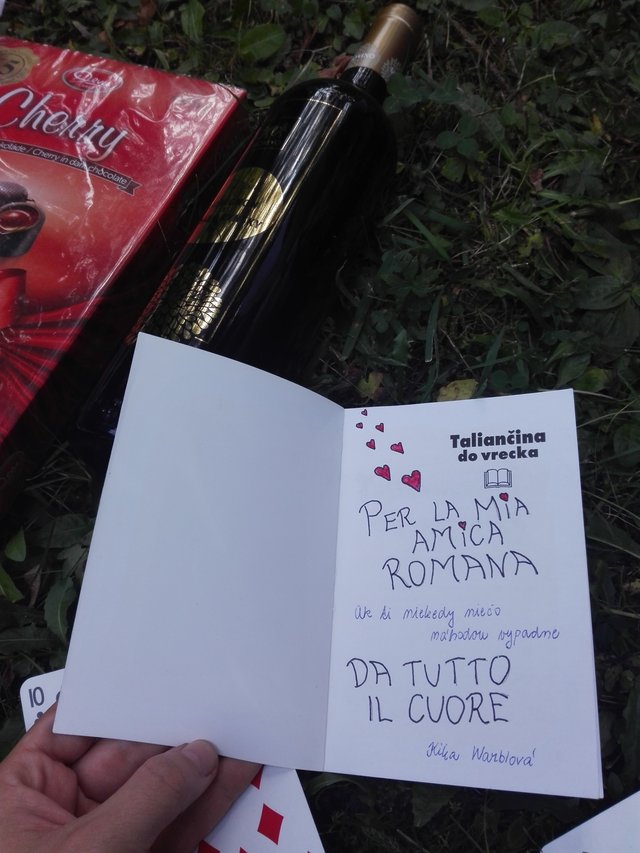 Cherry
Cherry in dark chocolate
10
Taliančina
do vrecka
PER LA MIA
AMICA
ROMANA
Ak ti niekedy niečo
náhodou vypadne
DA TUTTO
IL CUORE
Kika Warblová